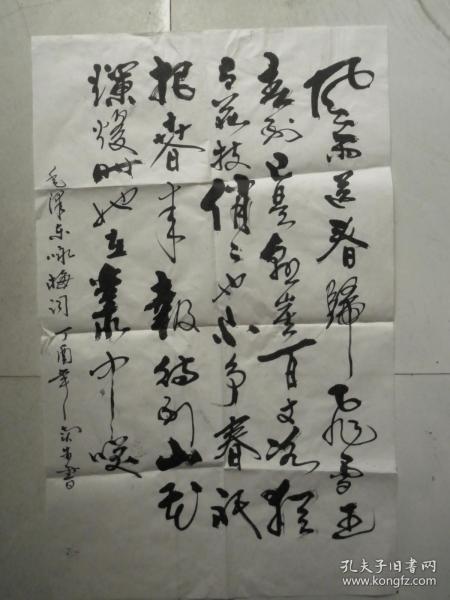 風雨送春歸飛雪迎
春到已是懸崖百丈冰猶
有花枝俏〻也不争春祇
把春来報待到山花
爛熳時她在叢中咲
毛泽东咏梅词 丁酉年 书
孔夫子旧书网
www.kongfz.com